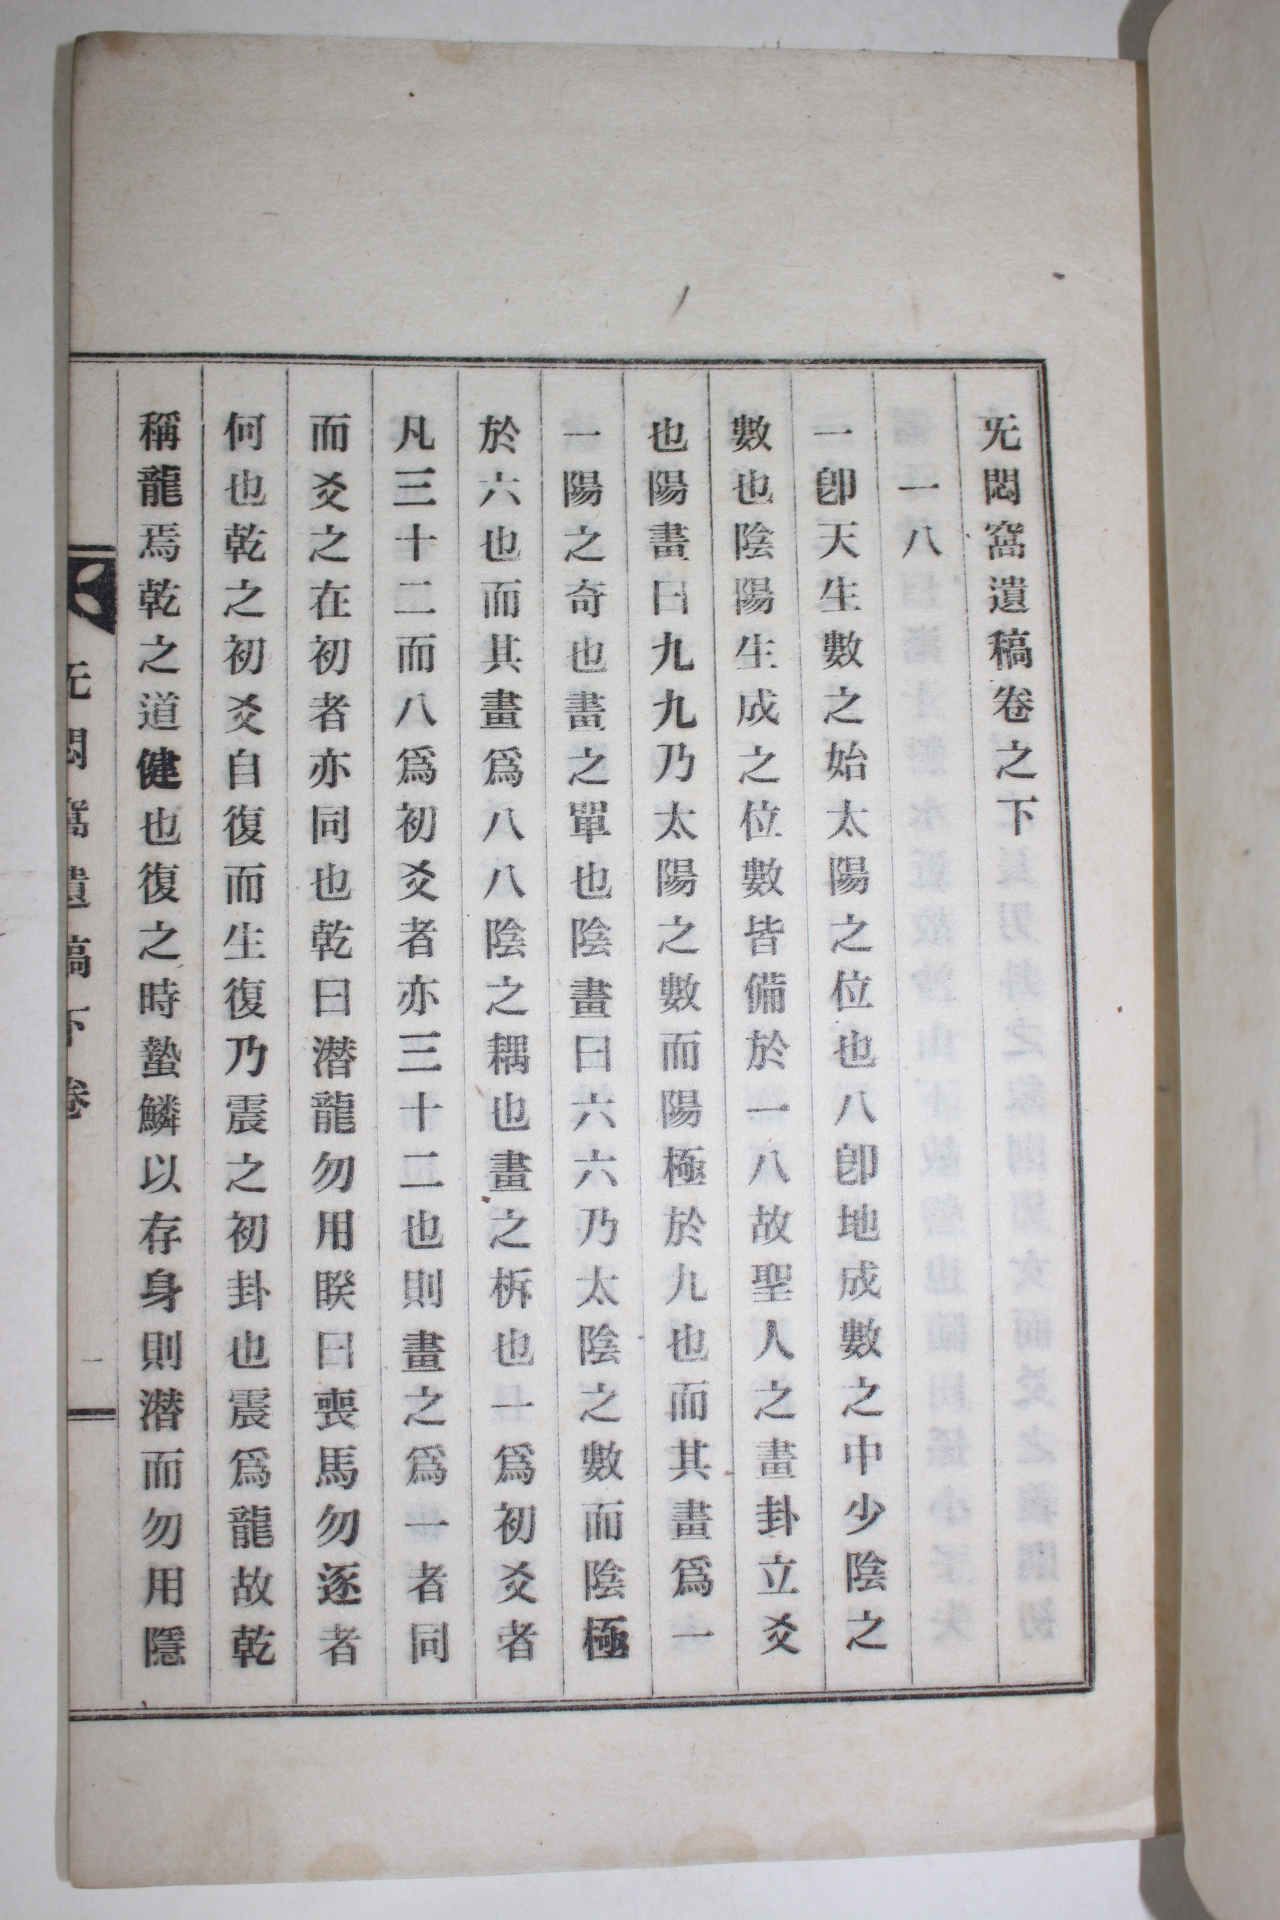 旡悶窩遺稿卷之下
一八
一卽天生數之始太陽之位也八卽地成數之中少陰之
數也陰陽生成之位數皆備於一八故聖人之畫卦立爻
也陽畫曰九九乃太陽之數而陽極於九也而其畫爲一
一陽之奇也畫之單也陰畫曰六六乃太陰之數而陰極
於六也而其畫爲八八陰之耦也畫之柝也一爲初爻者
凡三十二而八爲初爻者亦三十二也則畫之爲一者同
而爻之在初者亦同也乾曰潛龍勿用睽曰喪馬勿逐者
何也乾之初爻自復而生復乃震之初卦也震爲龍故乾
稱龍焉乾之道健也復之時蟄鱗以存身則潛而勿用隱
旡悶窩遺稿下卷
一